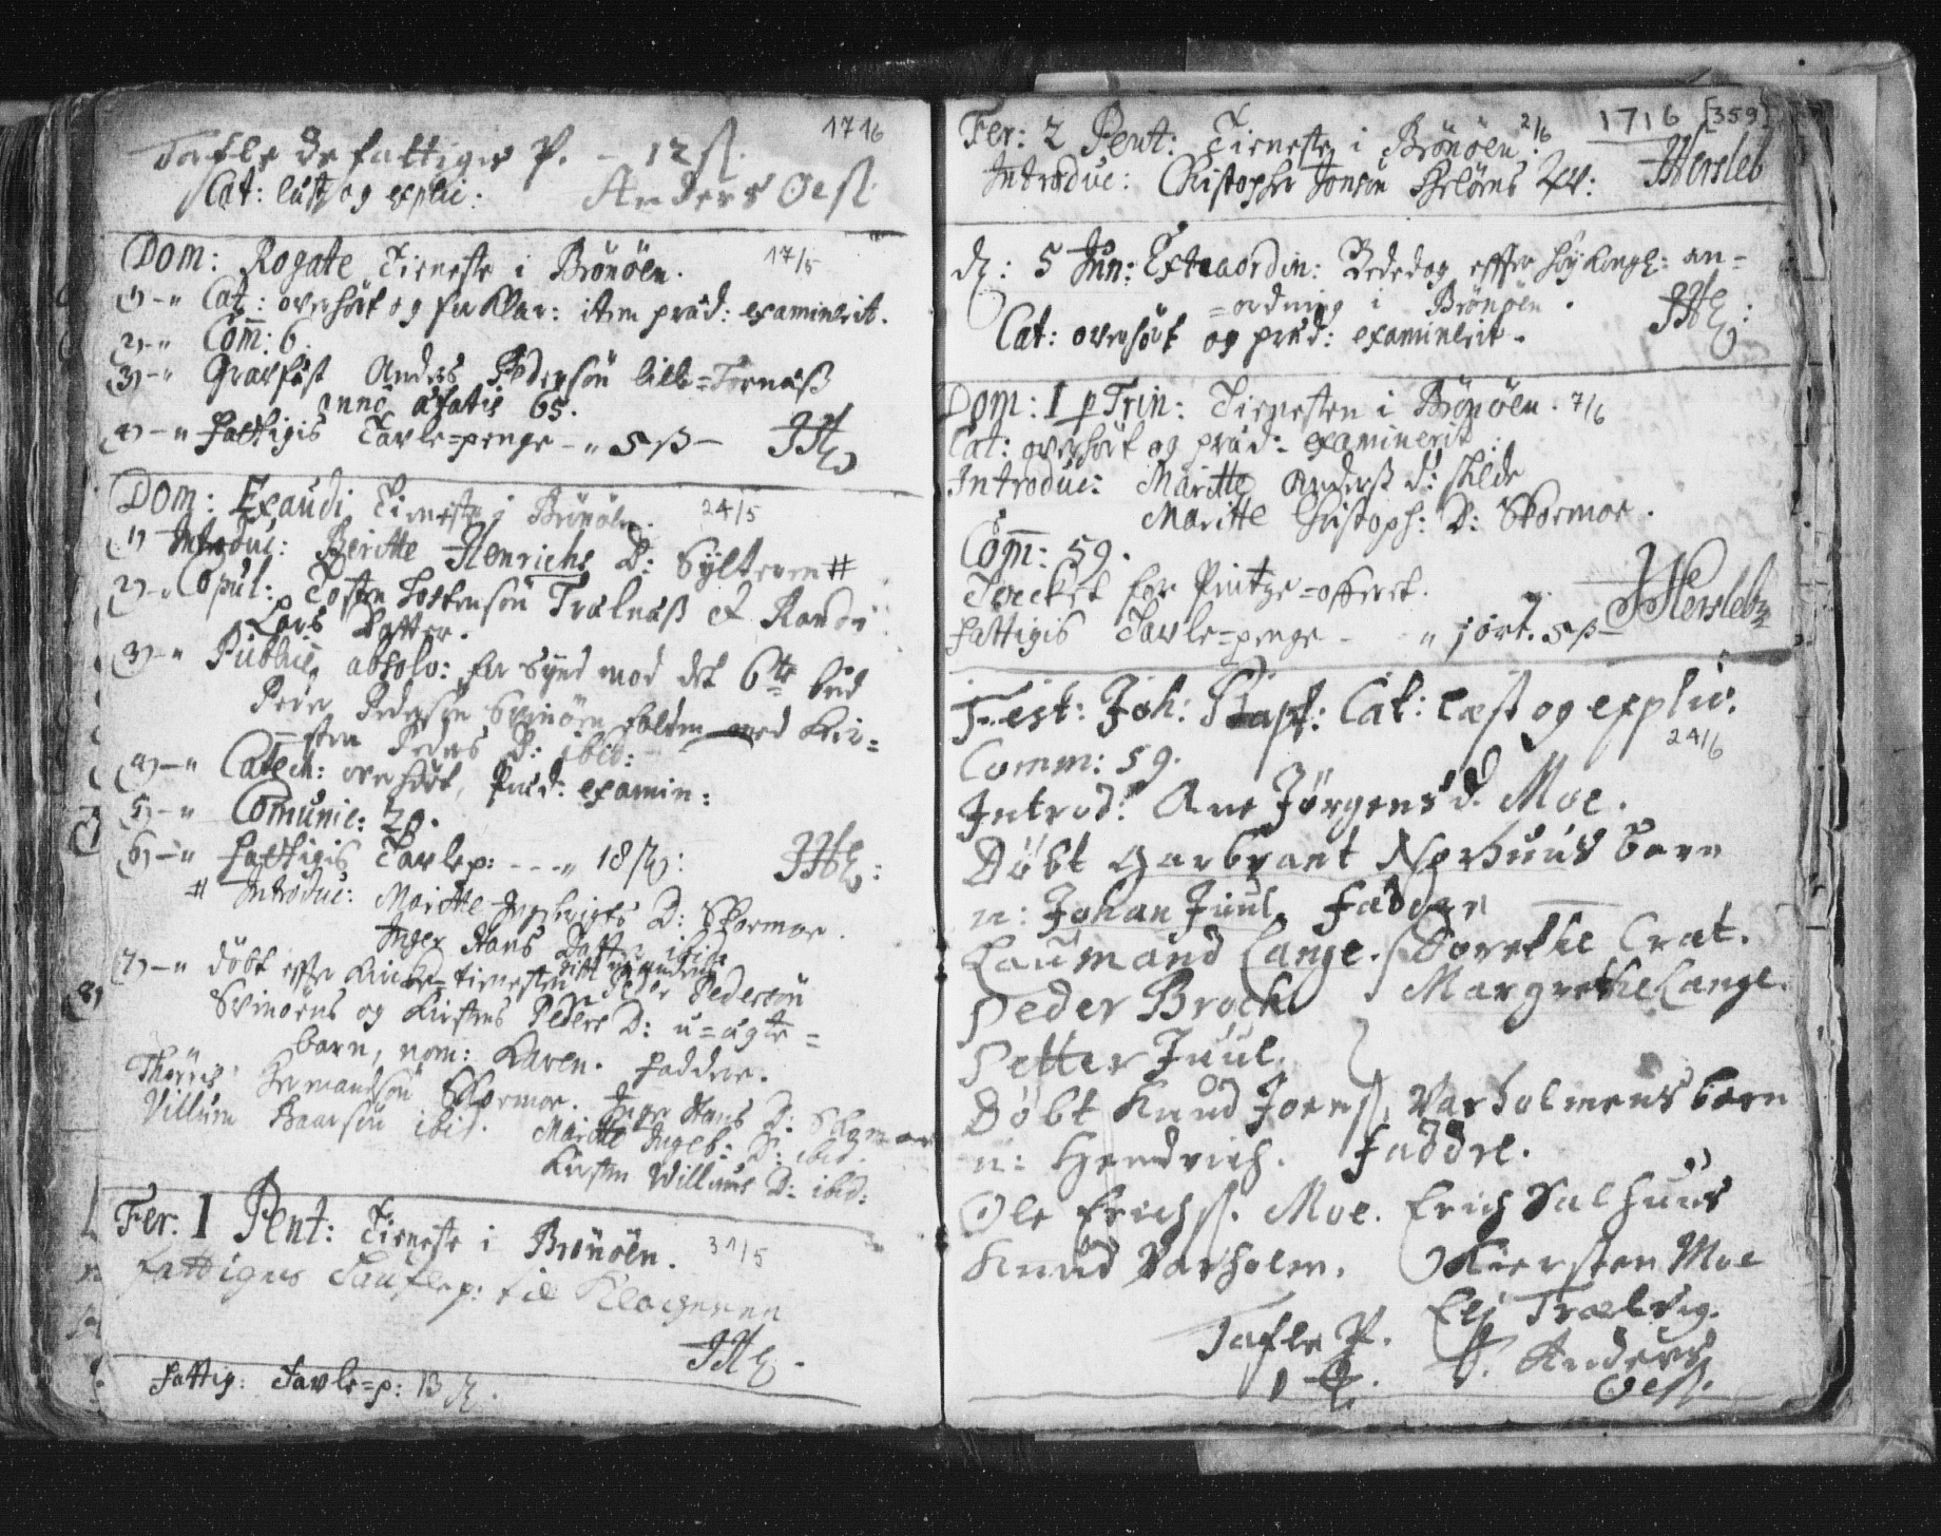 1716
Tafle de fattiges P. - 12 ß.
Cat: læst og explic: Anders Oes:
Dom: Rogate Tieneste i Brönöen. 17/5
1) - " Cat: overhört og forklar: item præd: examinerit.
2) - " Com̄: 6.
3) - " Gravfæst Anders Pedersön lille=Tornæs
anno ætatis 65.
4) - " Fattigis Tavle=penge - " 5 ß - JHL
Dom: Exaudi Tieneste i Brönöen. 24/5
1) Introduc: Beritte Henrichs D: Sylteren #
2) - " Copul: Tosten Tostensön Trælnæs & Randi
Lars Dotter.
3) - " Public: absolv: for Synd mod det 6te bud
Peder Pedersön Svinöen falden med Kir=
=sten Peders D: ibid:
4) - " Catech: overhört, Præd: examin:
5) - " Comunic: 20.
6) - " Fattigis Tavlep: - - - " 18 ß: JHL:
# Introduc: Maritte Ingebrigts D: Skormoe.
Inger Hans Datter ibid:
7) - " döbt efter Kircke=tienesten Peder Pedersön
Svinöens og Kirstens Peders D: u=ægte=
barn, nom: Karen. Faddere.
Thörris Hermandsön Skormoe. Inger Hans D: Skormoe
Villum Baarsön ibid. Maritte Ingeb: D: ibid.
Kirsten Villums D: ibid:
Fer: 1 Pent: Tieneste i Brönöen. 31/5
fattiges Taufle p: til Klockeren
JHL.
Fattig: Tavle=p: 13 ß.
1716 [359]
Fer: 2 Pent: Tieneste i Brönöen. 2/6
Introduc: Christopher Jonsön Uxor: JHersleb
d: 5 Jun: Extraordin: Bededag efter høy Kongl: an=
=ordning i Brönöen.
Cat: overhört og præd: examinerit. JHL:
Dom: 1 p Trin: Tienesten i Brönöen. 7/6
Cat: overhört og præd: examinerit.
Introduc: Maritte Anders D: Tilde
Maritte Christoph: D: Skormoe.
Com̄: 59.
Tacket for Printze=offeret.
Fattigis Tavle=penge - " 1 ort. 5 ß - JHersleb
Fest: Joh: Bapt: Cat: læst og explic:
24/6
Comm: 59.
Introd: Ane Jörgens d. Moe.
Döbt Garbrant Norhuus barn
n: Johan Juul. Faddre
Laumand Lange. Dorethe Crat.
Peder Brock Margrethe Lange.
Petter Juul.
Döbt Knud Joens. Varholmens barn
n: Hendrich. Faddre.
Ole Erichs. Moe. Erich Salhuus
Knud Varholm. Kiersten Moe
Eli Trælvig.
Tafle P. Anders
Oes.